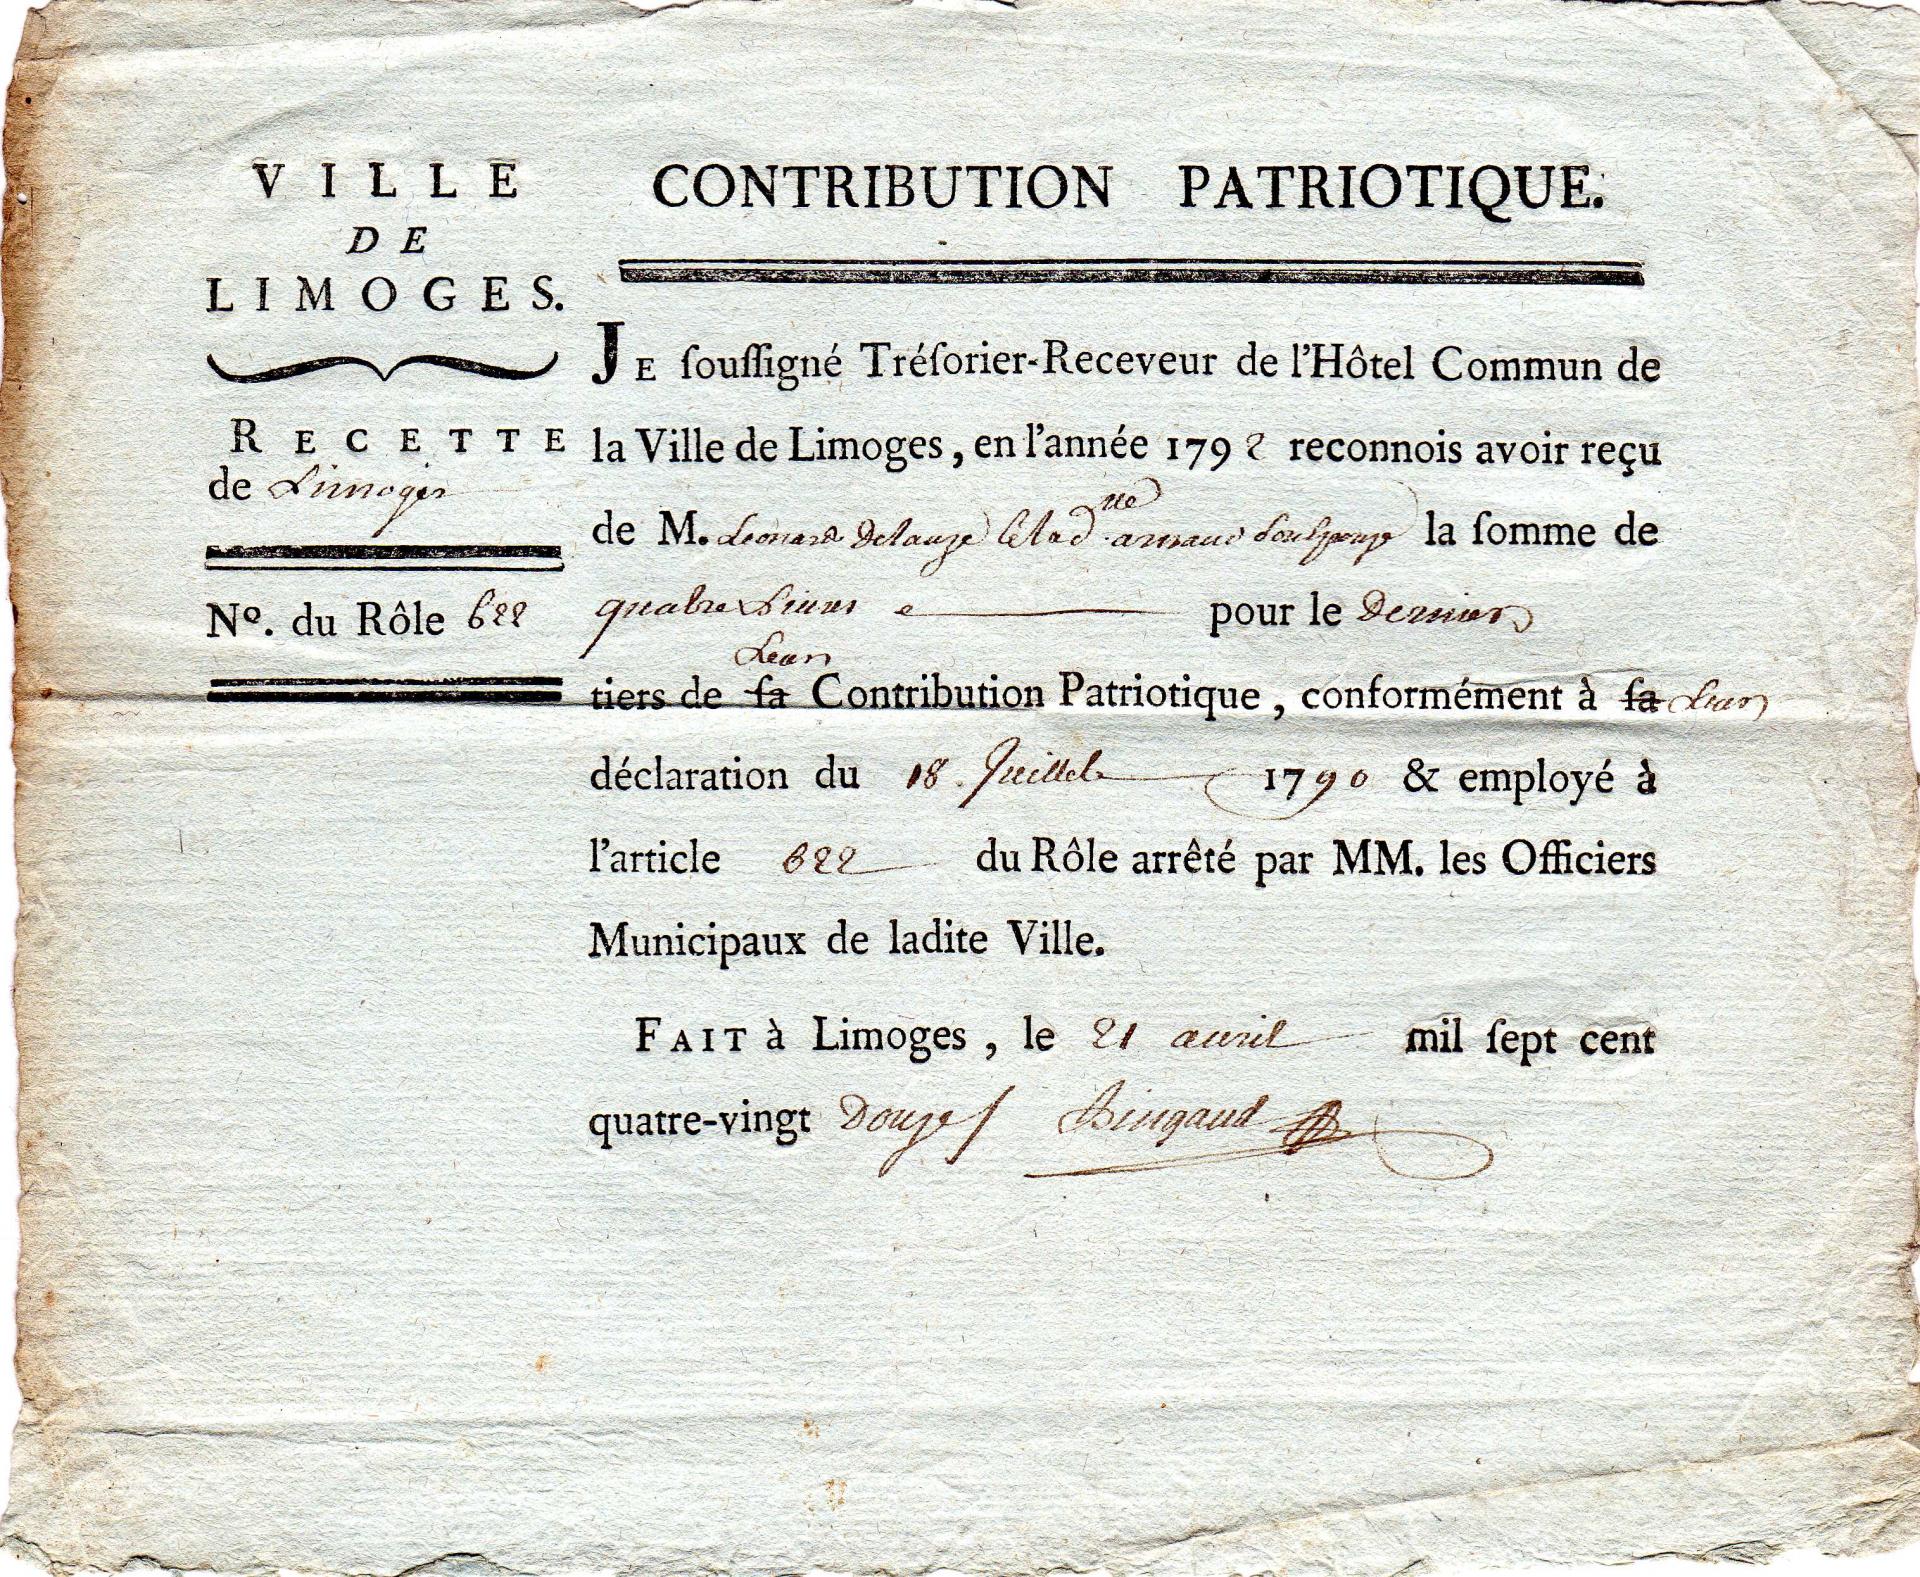 VILLE
DE
LIMOGES.
RECETTE
de Limoges
Nº. du Rôle 622
CONTRIBUTION PATRIOTIQUE.
JE ſouſſigné Tréſorier-Receveur de l'Hôtel Commun de
la Ville de Limoges, en l'année 1792 reconnois avoir reçu
de M. Leonard Delauze et lad ne arnaud Son Epouze la ſomme de
quatre Livres pour le Dernier
Leur
tiers de ſa Contribution Patriotique, conformément à ſa Leur
déclaration du 18 Juillet 1790 & employé à
l'article 622 du Rôle arrêté par MM. les Officiers
Municipaux de ladite Ville.
FAIT à Limoges, le 21 avril mil ſept cent
quatre-vingt Douze